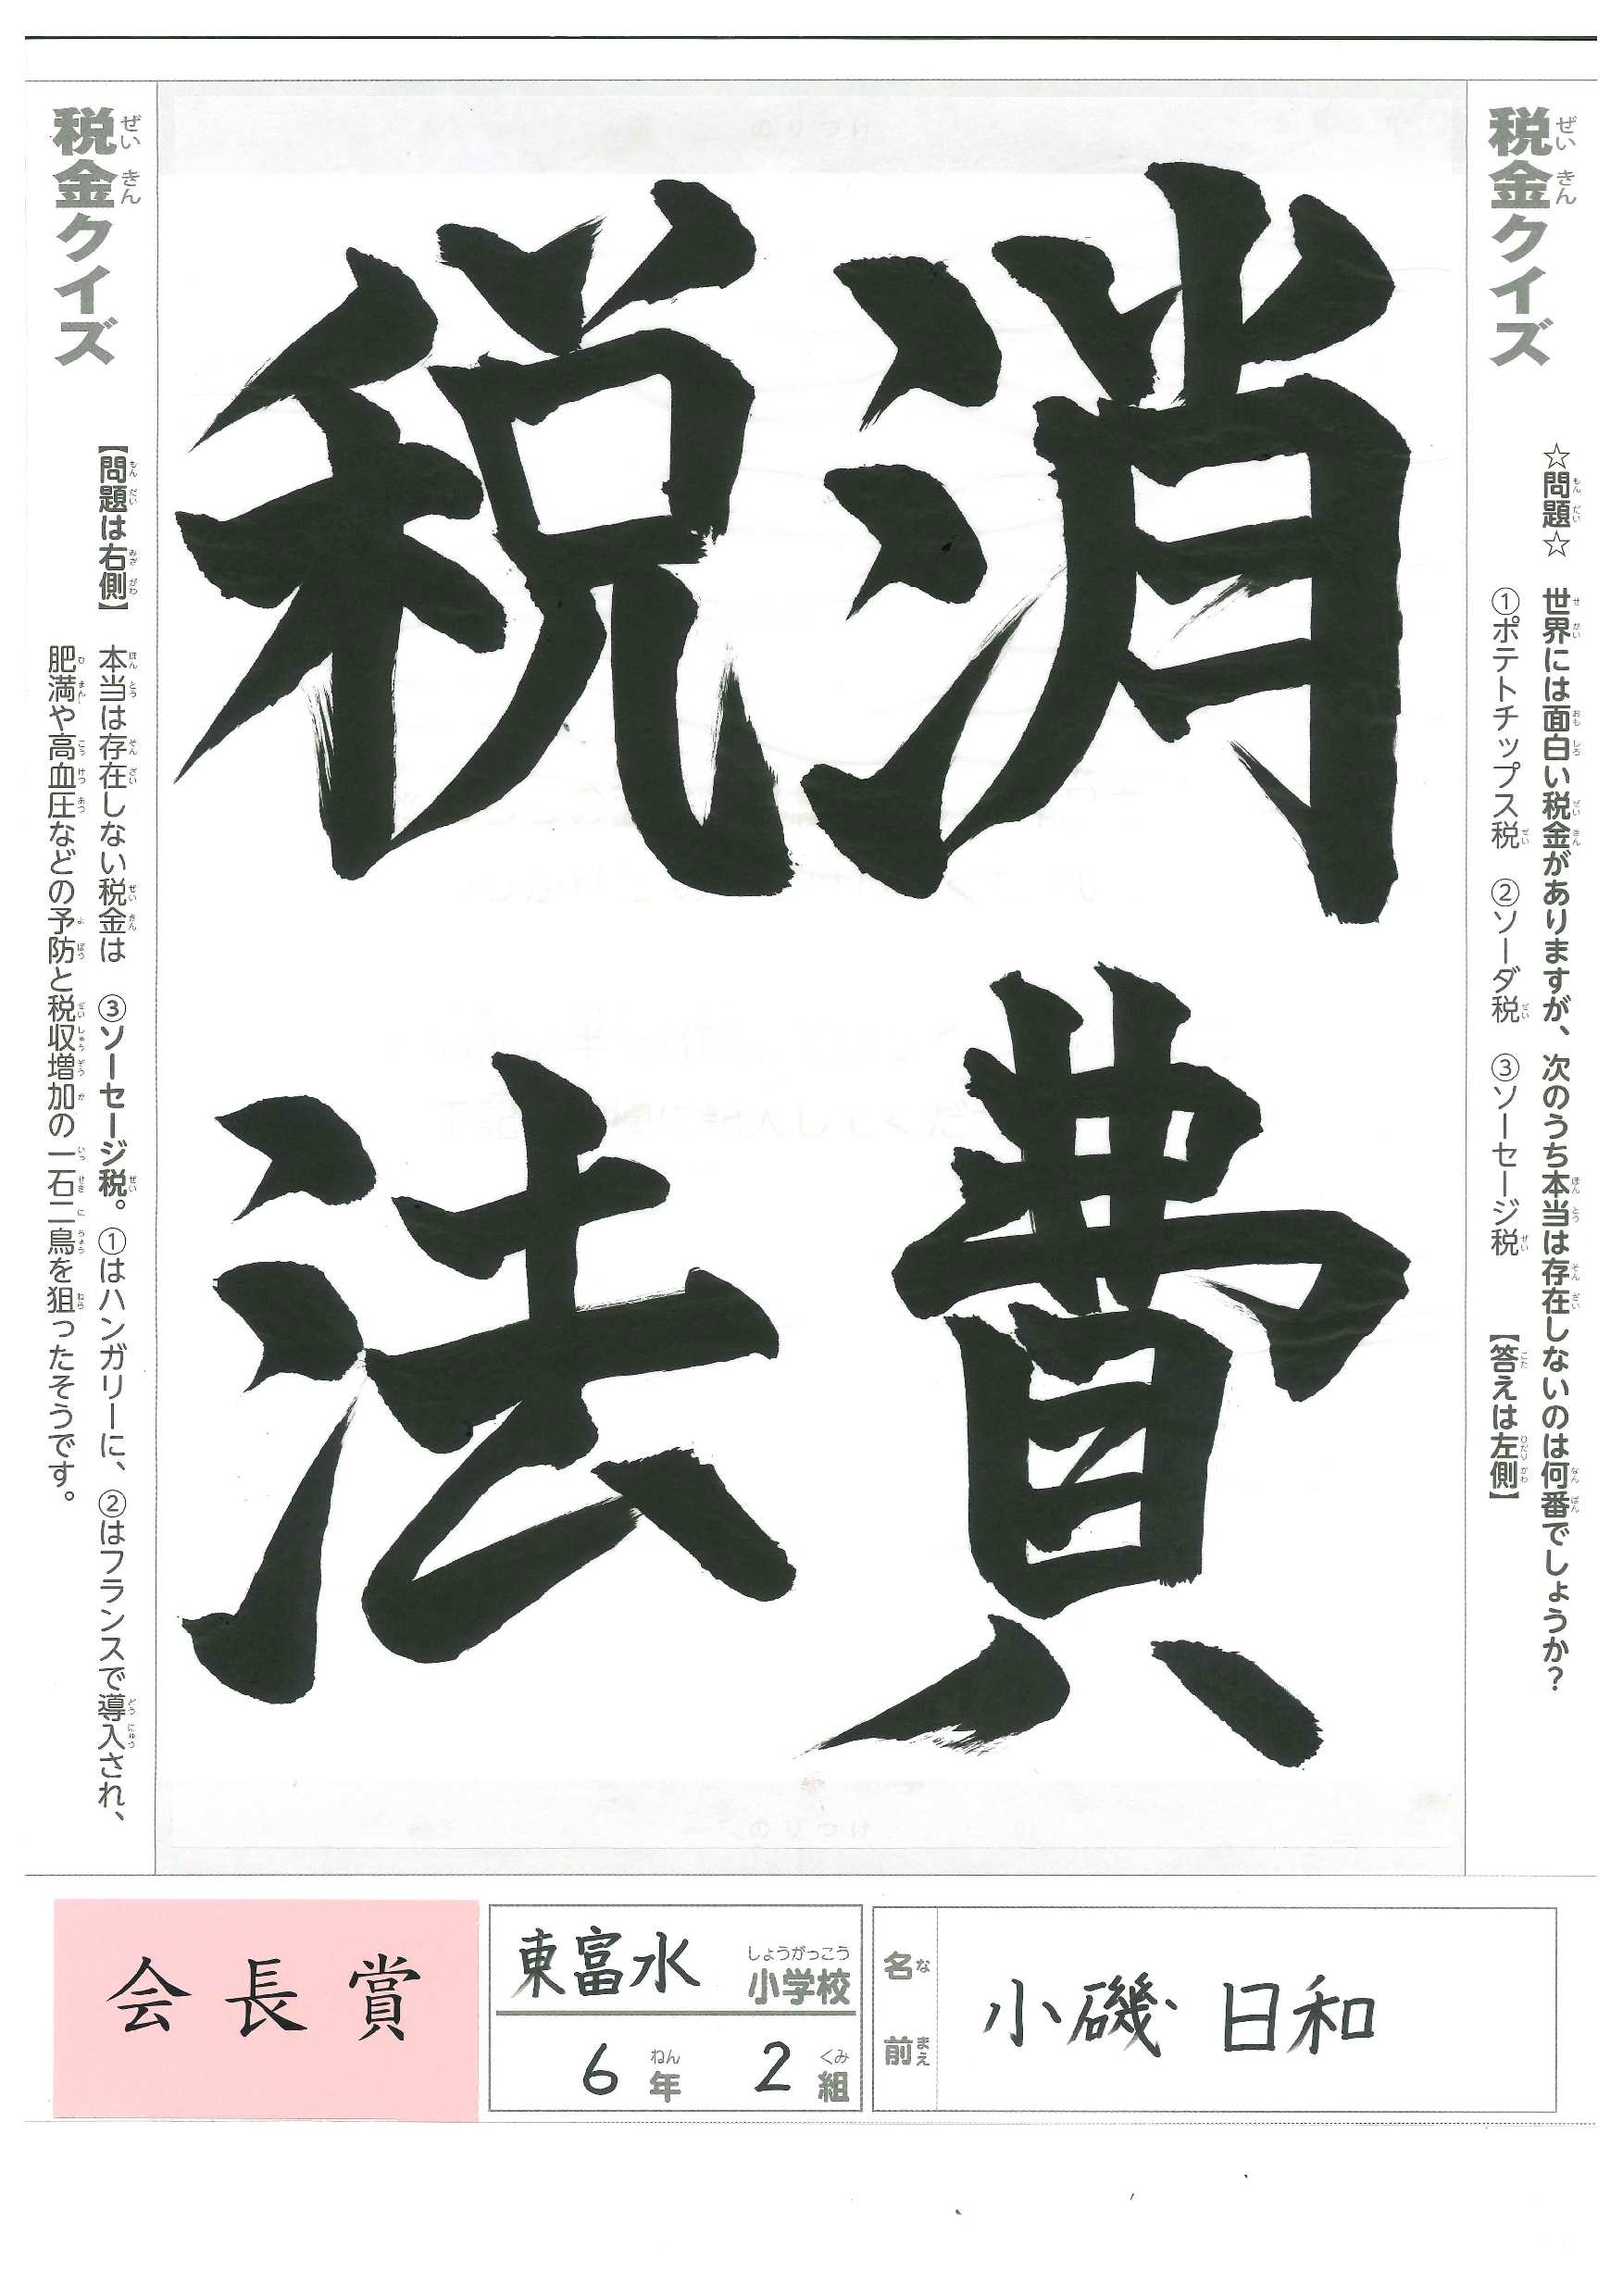 税金クイズ
☆問題☆ 世界には面白い税金がありますが、次のうち本当は存在しないのは何番でしょうか？
①ポテトチップス税 ②ソーダ税 ③ソーセージ税 【答えは左側】
消費
税法
税金クイズ
【問題は右側】 本当は存在しない税金は ③ソーセージ税。①はハンガリーに、②はフランスで導入され、
肥満や高血圧などの予防と税収増加の一石二鳥を狙ったそうです。
のりつけ
のりつけ
会長賞
東富水 小学校
6年 2組
名前 小磯 日和